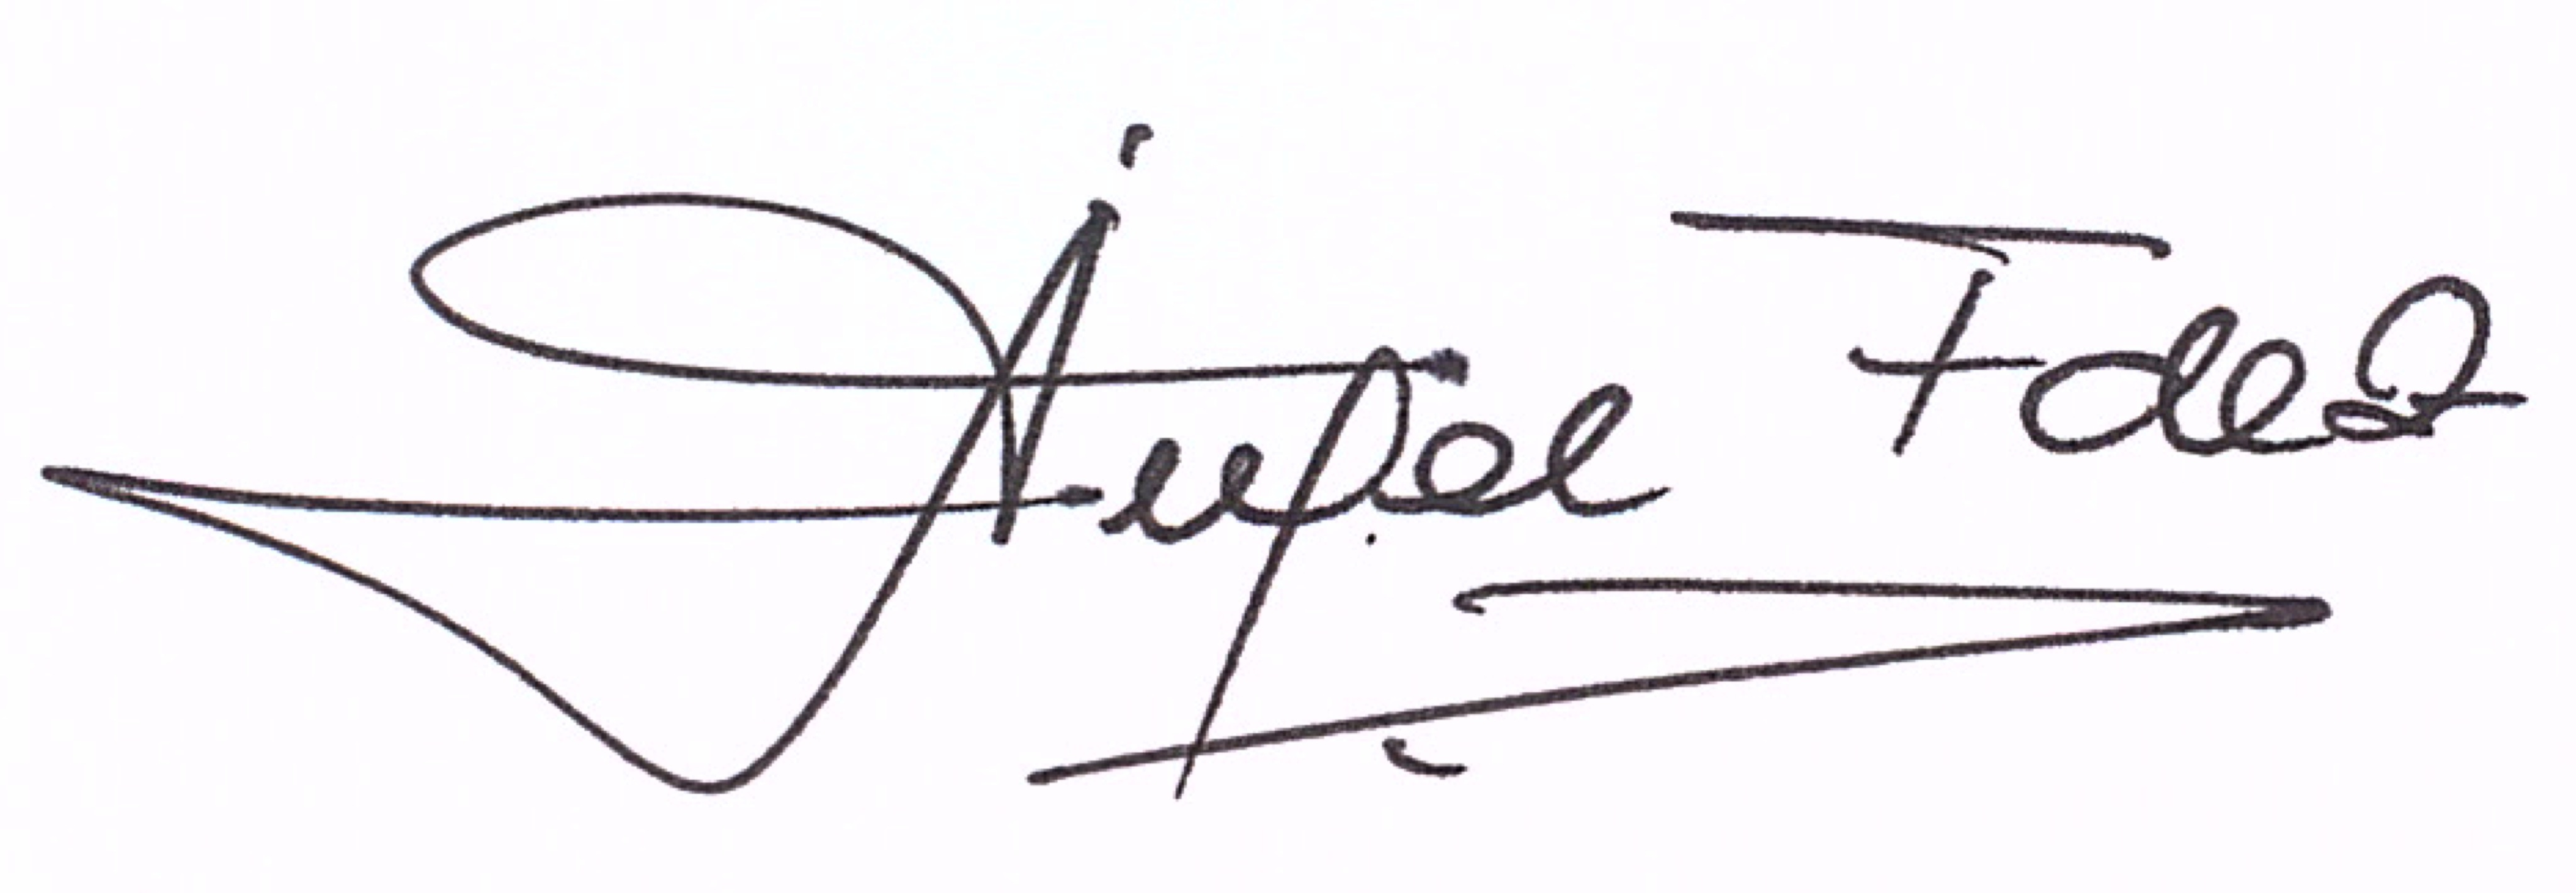 Ángel Fdez